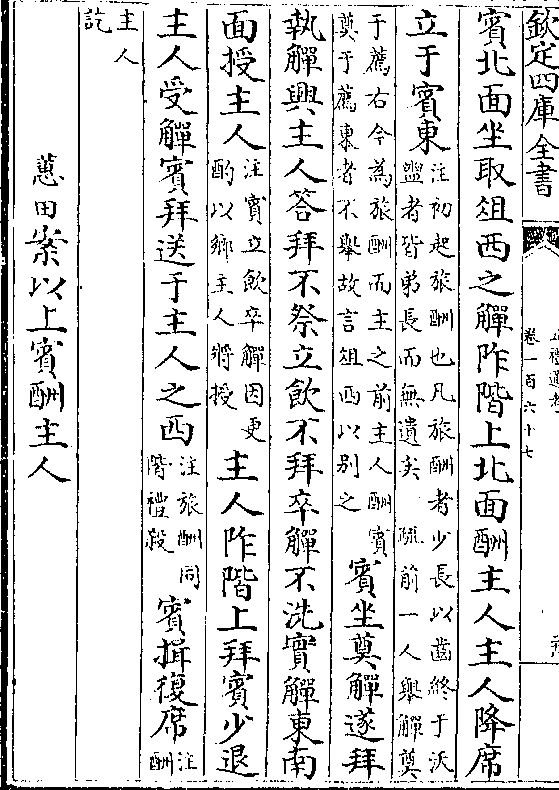 欽定四庫全書
卷一百六十七
賓北面坐取俎西之觶阼階上北面酬主人主人降席
立于賓東
注初起旅酬也凡旅酬者少長以齒終于沃
盥者皆弟長而無遺矣 疏前一人舉觶奠
于薦右今為旅酬而主之前主人酬賓
奠于薦東者不舉故言俎西以别之
賓坐奠觶遂拜
執觶興主人答拜不祭立飲不拜卒觶不洗實觶東南
面授主人
注賓立飲卒觶因更
酌以鄉主人將授
主人阼階上拜賓少退
主人受觶賓拜送于主人之西
注旅酬同
階禮殺
賓揖復席
注
酬
主人
訖
蕙田案以上賓酬主人